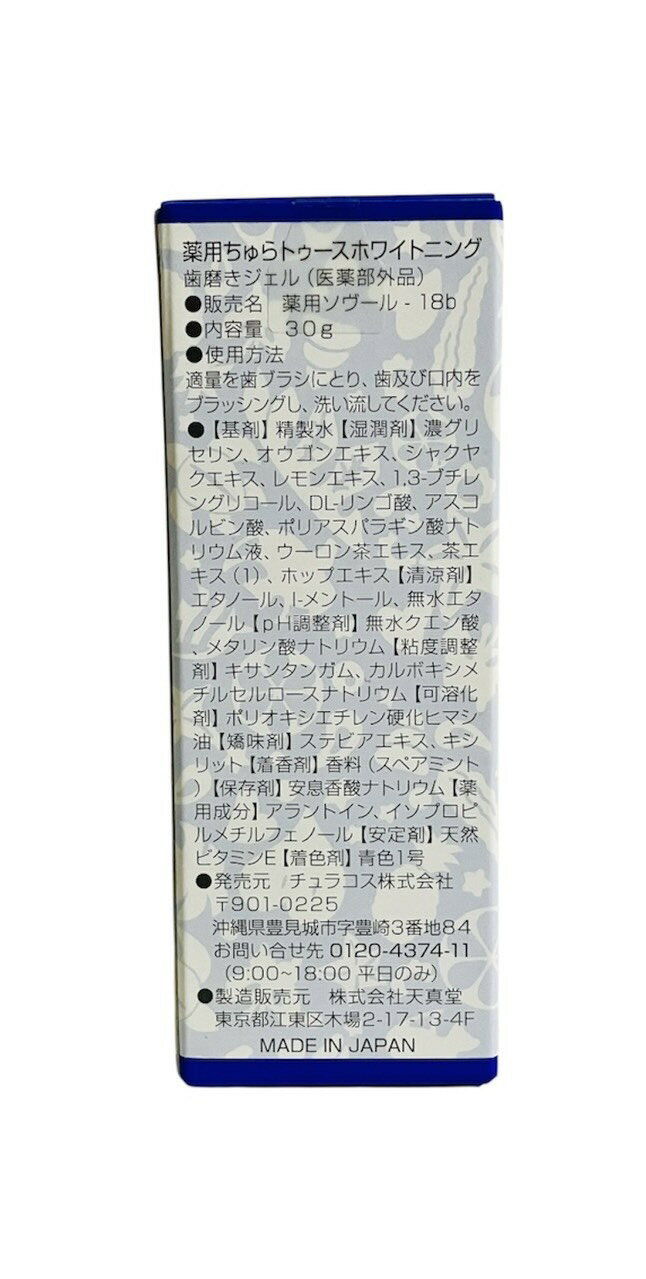 薬用ちゅらトゥースホワイトニング
歯磨きジェル（医薬部外品）
●販売名　薬用ソヴール - 18b
●内容量　30g
●使用方法
適量を歯ブラシにとり、歯及び口内を
ブラッシングし、洗い流してください。
●【基剤】精製水【湿潤剤】濃グリ
セリン、オウゴンエキス、シャクヤ
クエキス、レモンエキス、1,3-ブチレ
ングリコール、DL-リンゴ酸、アスコ
ルビン酸、ポリアスパラギン酸ナト
リウム液、ウーロン茶エキス、茶エ
キス（1）、ホップエキス【清涼剤】
エタノール、l-メントール、無水エタ
ノール【pH調整剤】無水クエン酸
、メタリン酸ナトリウム【粘度調整
剤】キサンタンガム、カルボキシメ
チルセルロースナトリウム【可溶化
剤】ポリオキシエチレン硬化ヒマシ
油【矯味剤】ステビアエキス、キシ
リット【着香剤】香料（スペアミント
）【保存剤】安息香酸ナトリウム【薬
用成分】アラントイン、イソプロピ
ルメチルフェノール【安定剤】天然
ビタミンE【着色剤】青色1号
●発売元　チュラコス株式会社
〒901-0225
沖縄県豊見城市字豊崎3番地84
お問い合せ先 0120-4374-11
（9:00~18:00 平日のみ）
●製造販売元　株式会社天真堂
東京都江東区木場2-17-13-4F
MADE IN JAPAN